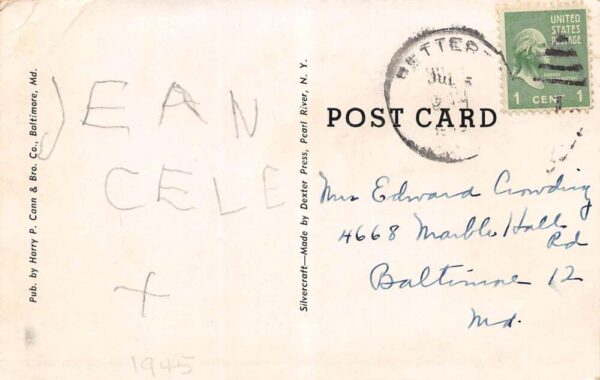 Pub. by Harry P. Cann & Bro. Co., Baltimore, Md.
JEAN
CELE
+
1945
Silvercraft—Made by Dexter Press, Pearl River, N. Y.
BETTER
JUL 5
UNITED
STATES
POSTAGE
1 CENT 1
POST CARD
Mrs Edward Crowding
4668 Marble Hall
Rd
Baltimore 12
Md.